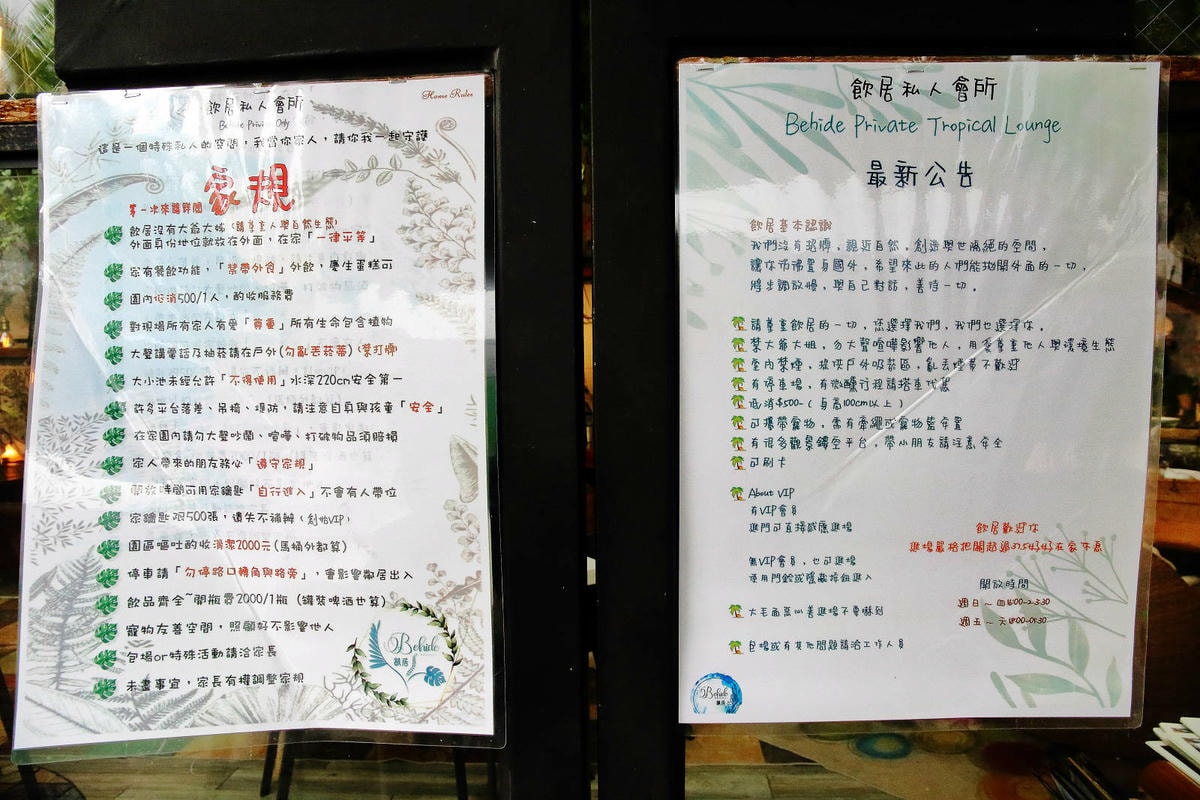 Home Rules
飲居私人會所
Behide Private Only
這是一個特殊私人的空間，我當你家人，請你我一起守護
家規
第一次來請詳閱
飲居沒有大爺大姊（請尊重人與自然生態）
外面身份地位就放在外面，在家「一律平等」
家有餐飲功能，「禁帶外食」外飲，慶生蛋糕可
園內低消500/1人，酌收服務費
對現場所有家人有愛「尊重」所有生命包含植物
大聲講電話及抽菸請在戶外(勿亂丟菸蒂)
大小池未經允許「不得使用」水深220cm安全第一
許多平台落差、吊橋、堤防，請注意自身與孩童「安全」
在家園內請勿大聲吵鬧、喧嘩、打破物品須賠損
家人帶來的朋友務必「遵守家規」
開放時間可用家鑰匙「自行進入」不會有人帶位
家鑰匙限500張，遺失不補辦（創始VIP）
園區嘔吐酌收清潔2000元(馬桶外都算)
停車請「勿停路口轉角與路旁」，會影響鄰居出入
飲品齊全~開瓶費2000/1瓶（罐裝啤酒也算）
寵物友善空間，照顧好不影響他人
包場or特殊活動請洽家長
未盡事宜，家長有權調整家規
Behide
飲居
飲居私人會所
Behide Private Tropical Lounge
最新公告
飲居基本認識
我們沒有招牌，親近自然，創造與世隔絕的空間，
讓你彷彿置身國外，希望來此的人們能拋開外面的一切，
將步調放慢，與自己對話，善待一切。
請尊重飲居的一切，您選擇我們，我們也選擇你。
禁大爺大姐，勿大聲喧嘩影響他人，用愛尊重他人與環境生態
室內禁煙，提供戶外吸菸區，亂丟煙蒂不歡迎
有停車場，有微醺行程請搭車代駕
低消$500-（身高100cm以上）
可攜帶寵物，需有牽繩或寵物籃安置
有很多觀景鏤空平台，帶小朋友請注意安全
可刷卡
About VIP
有VIP會員
進門可直接感應進場
無VIP會員，也可進場
使用門鈴或隱藏按鈕進入
飲居歡迎你
開放時間
週日～四
週五～六
大毛面惡心善進場不要嚇到
包場或有其他問題請洽工作人員
Behide
飲居